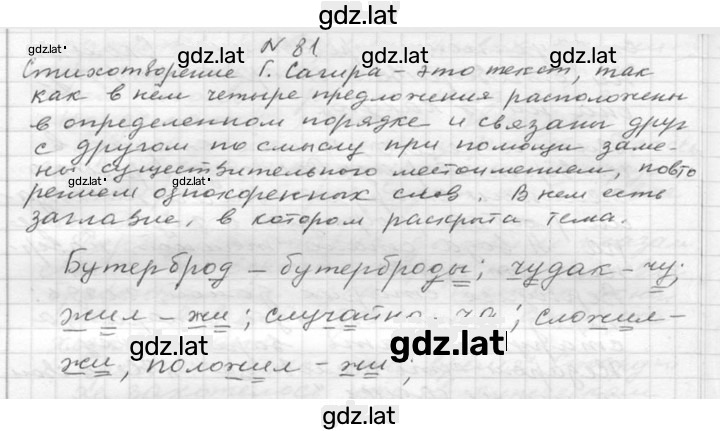 gdz.lat
N 81
gdz.lat
gdz.lat
gdz.lat
Стихотворение Г. Сагира – это текст, так
как в нём четыре предложения расположены
в определенном порядке и связаны друг
с другом по смыслу при помощи заме-
ны существительного местоимением, повто
gdz.lat
gdz.lat
рением однокоренных слов. В нем есть
заглавие, в котором раскрыта тема.
Бутерброд – бутерброды; чудак – чу;
жил – жи; случайно – ча; сложил –
gdz.lat
gdz.lat
жи, положил – жи;
gdz.lat